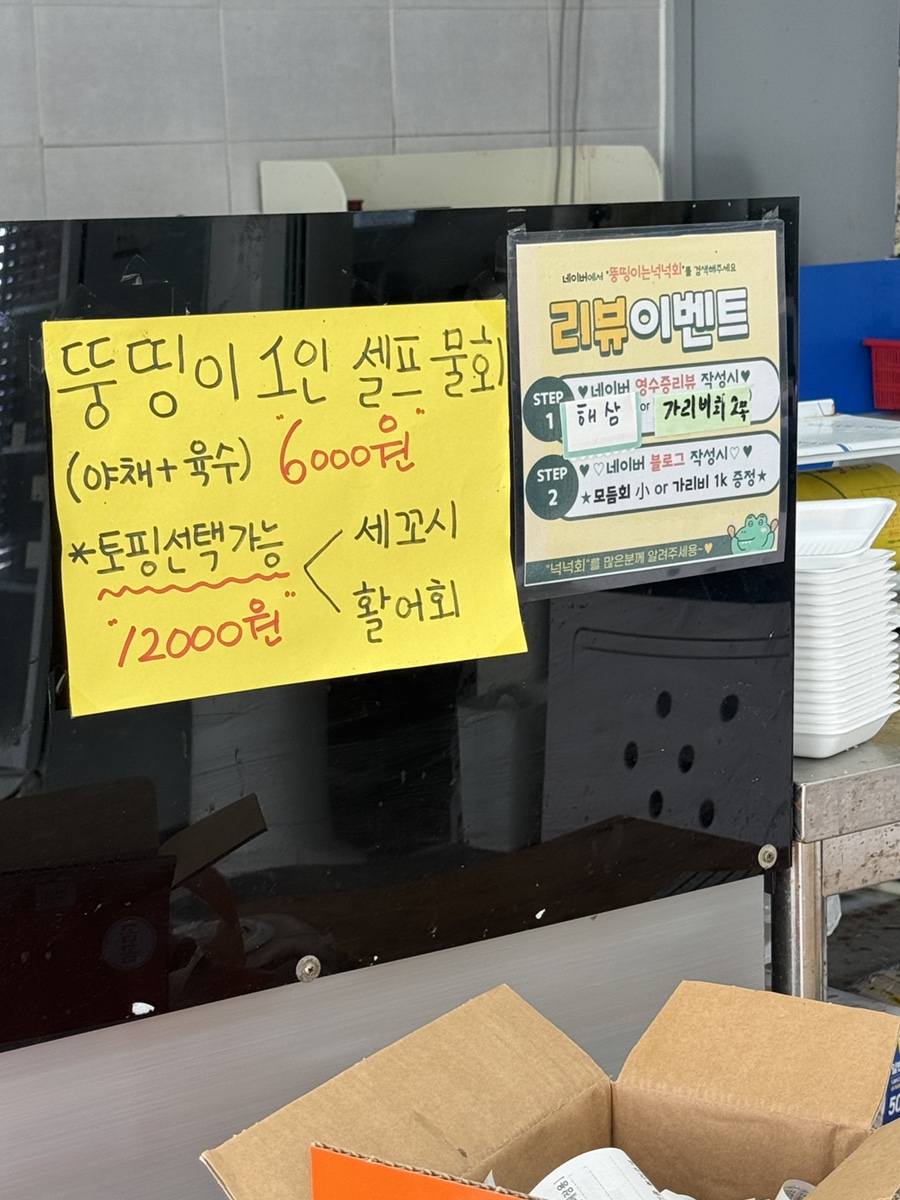 뚱띵이 1인 셀프 물회
(야채+육수) "6000원"
*토핑선택가능 < 세꼬시
활어회
"12000원"
네이버에서 "뚱띵이는넉넉회"를 검색해주세요
리뷰이벤트
STEP 1
♥네이버 영수증리뷰 작성시♥
해삼 or 가리비회 2쪽
STEP 2
♥♡네이버 블로그 작성시♡♥
★모듬회 小 or 가리비 1k 증정★
"넉넉회"를 많은분께 알려주세용~♥